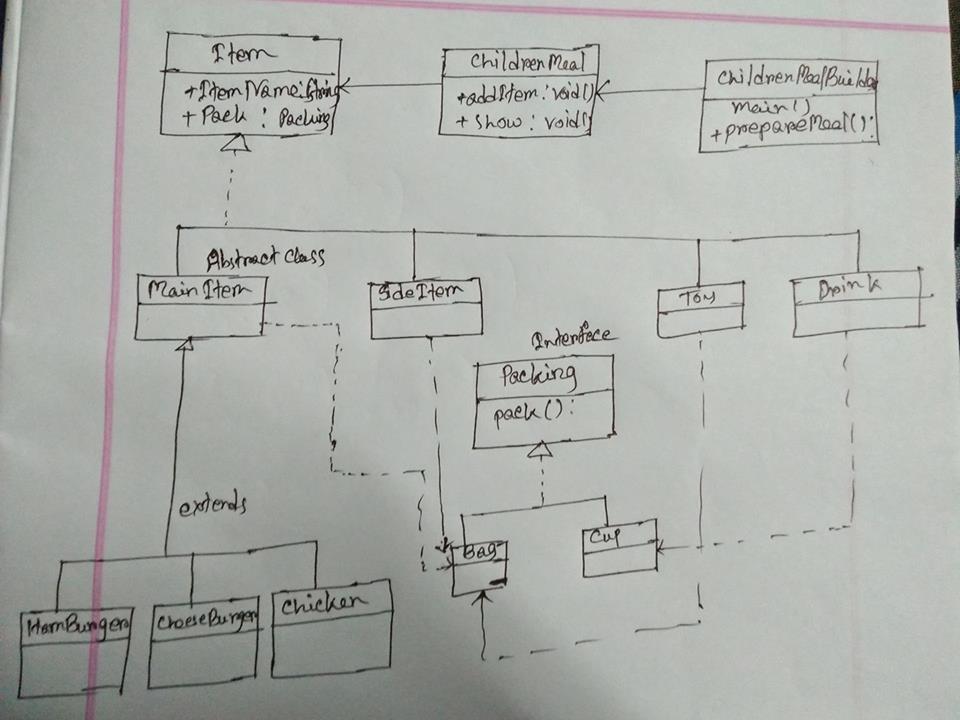 Item
+ItemName:String
+ Pack : Packing
ChildrenMeal
+addItem:void()
+ show : void()
ChildrenMealBuilder
main()
+prepareMeal():
Abstract class
MainItem
SideItem
Toy
Drink
Interface
Packing
pack():
extends
Bag
Cup
HamBurger
CheeseBurger
Chicken